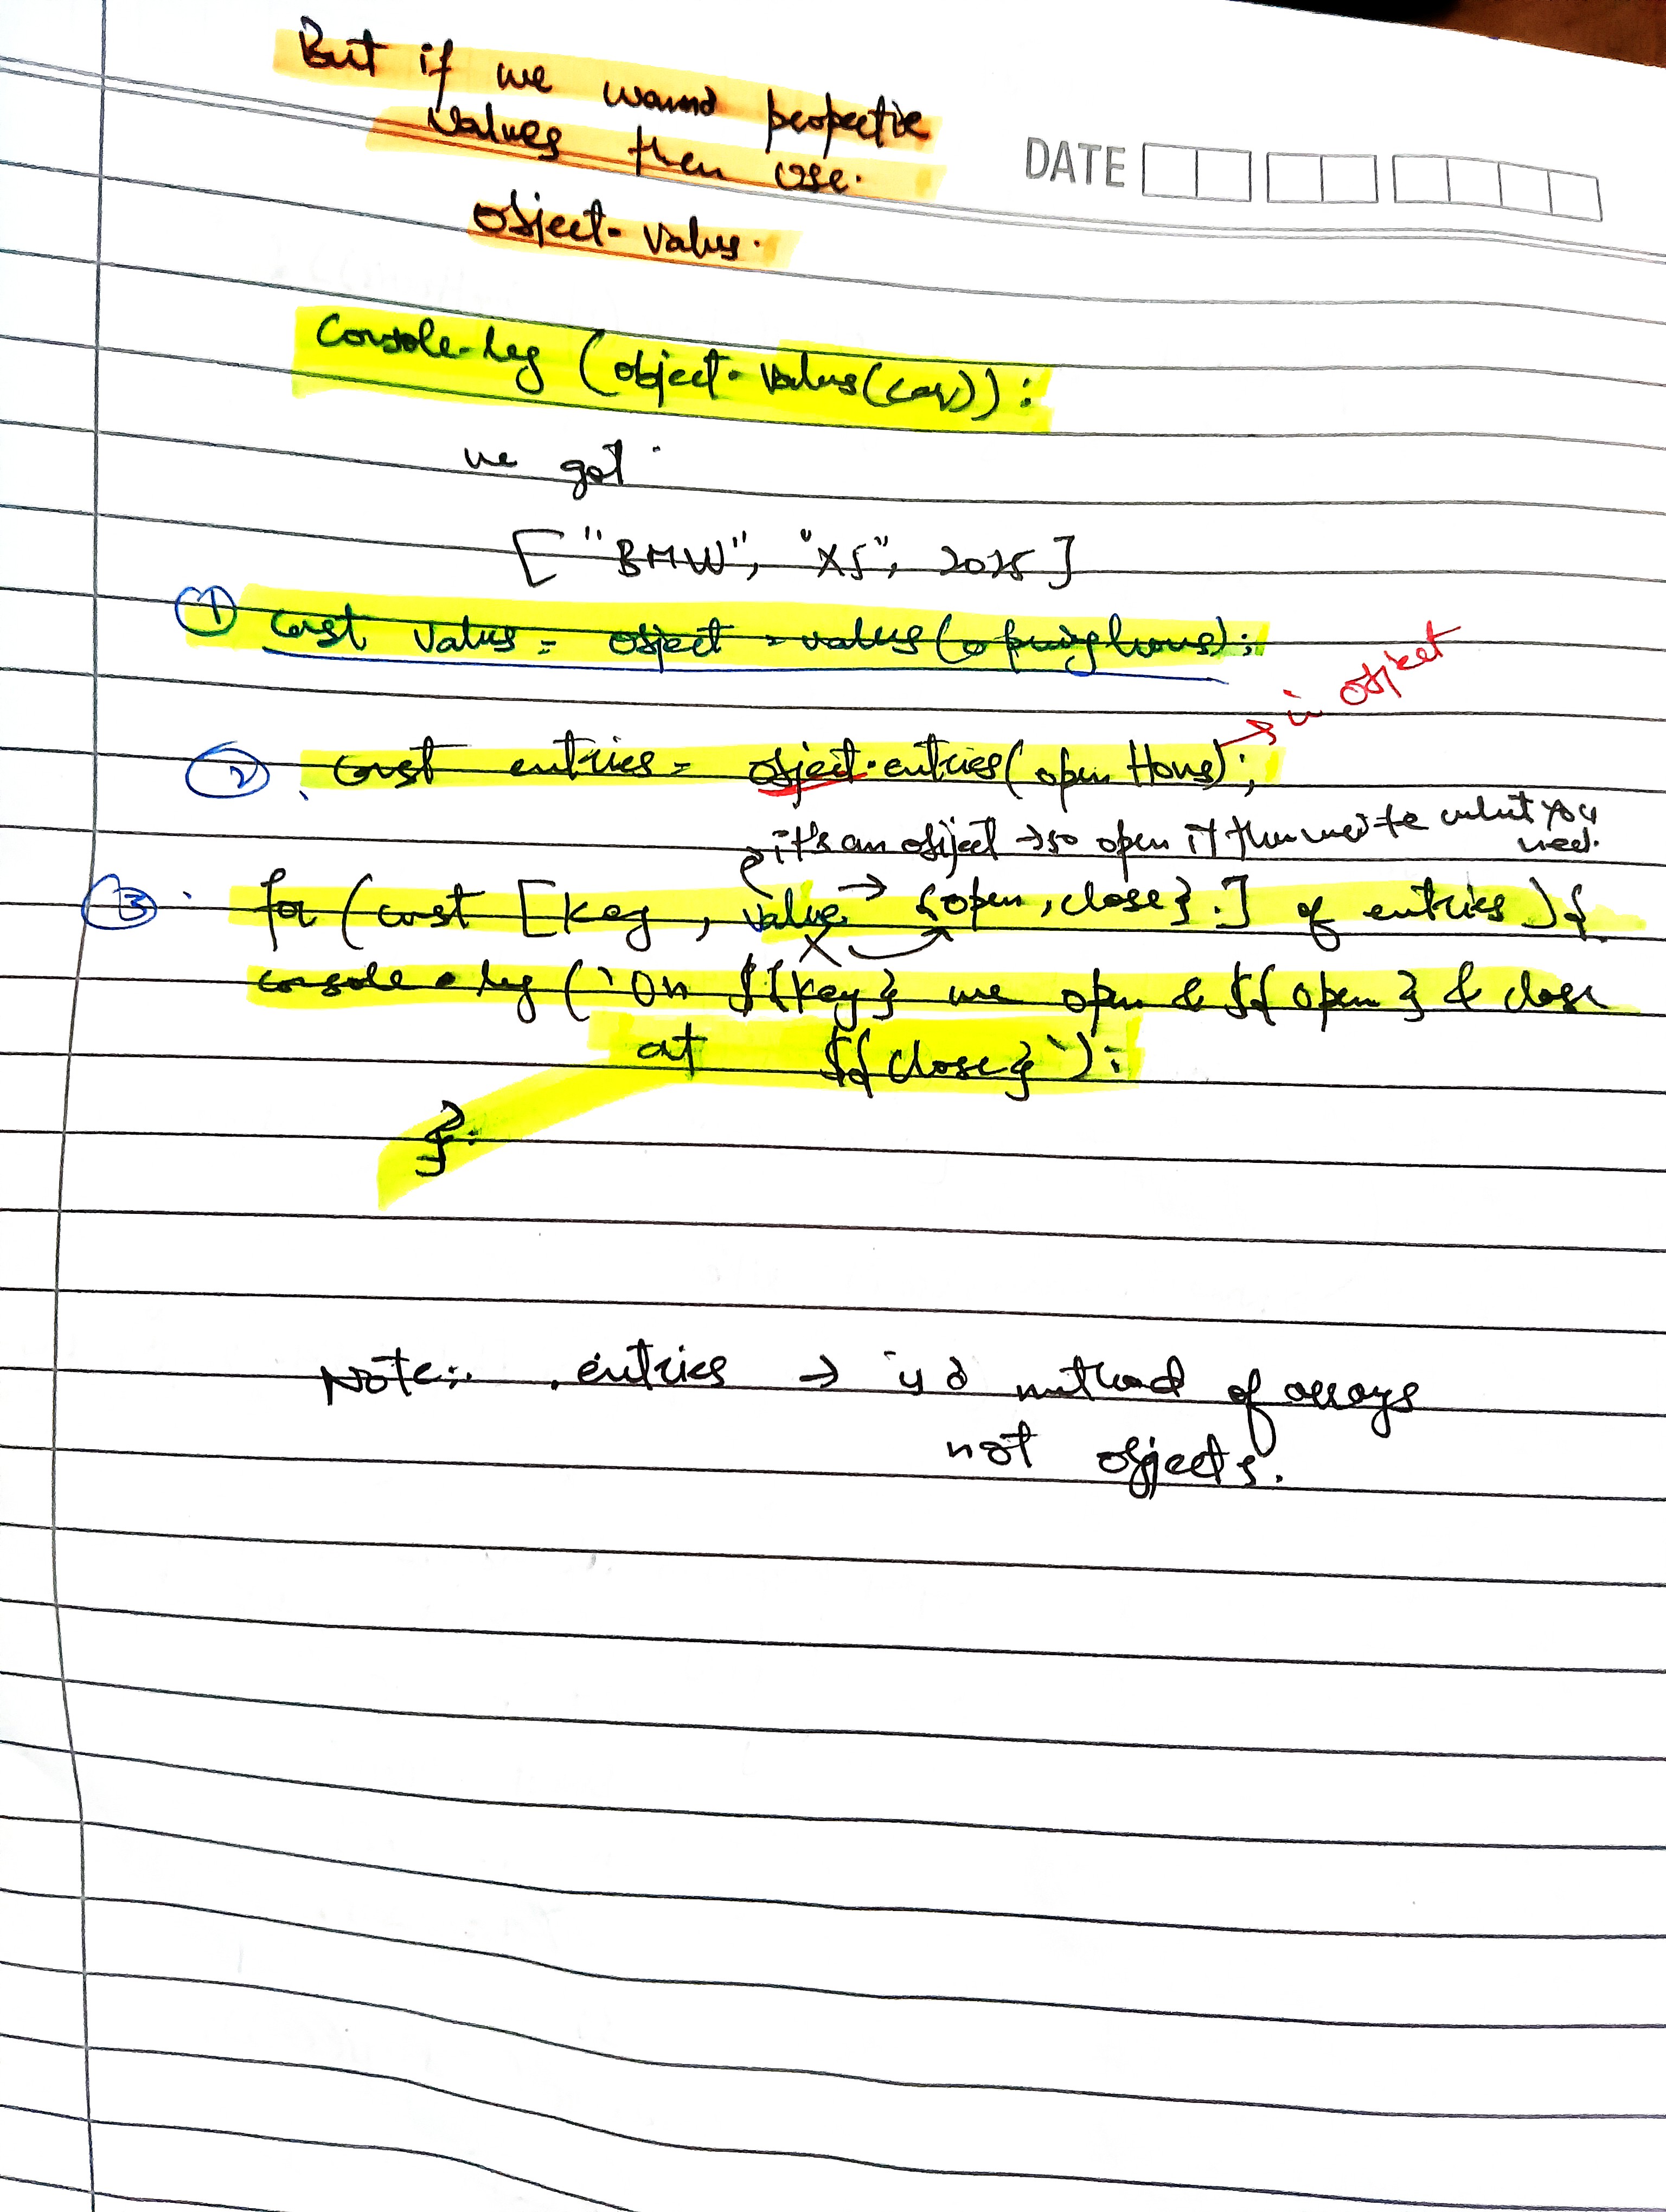 But if we wannd propertie
values then use.
DATE
object. values.
Console.log (object.values(car)):
we got
["BMW", "X5", 2025]
① const values = object.values(openinghours);
→ in object
② const entries = object.entries(open Hours);
it's an object → so open it then write what you need.
③ for (const [key, value → {open, close}.] of entries) {
X
console.log (`On ${key} we open & ${open} & close
at ${close}`):
}.
Note:. .entries → is a method of arrays
not objects.